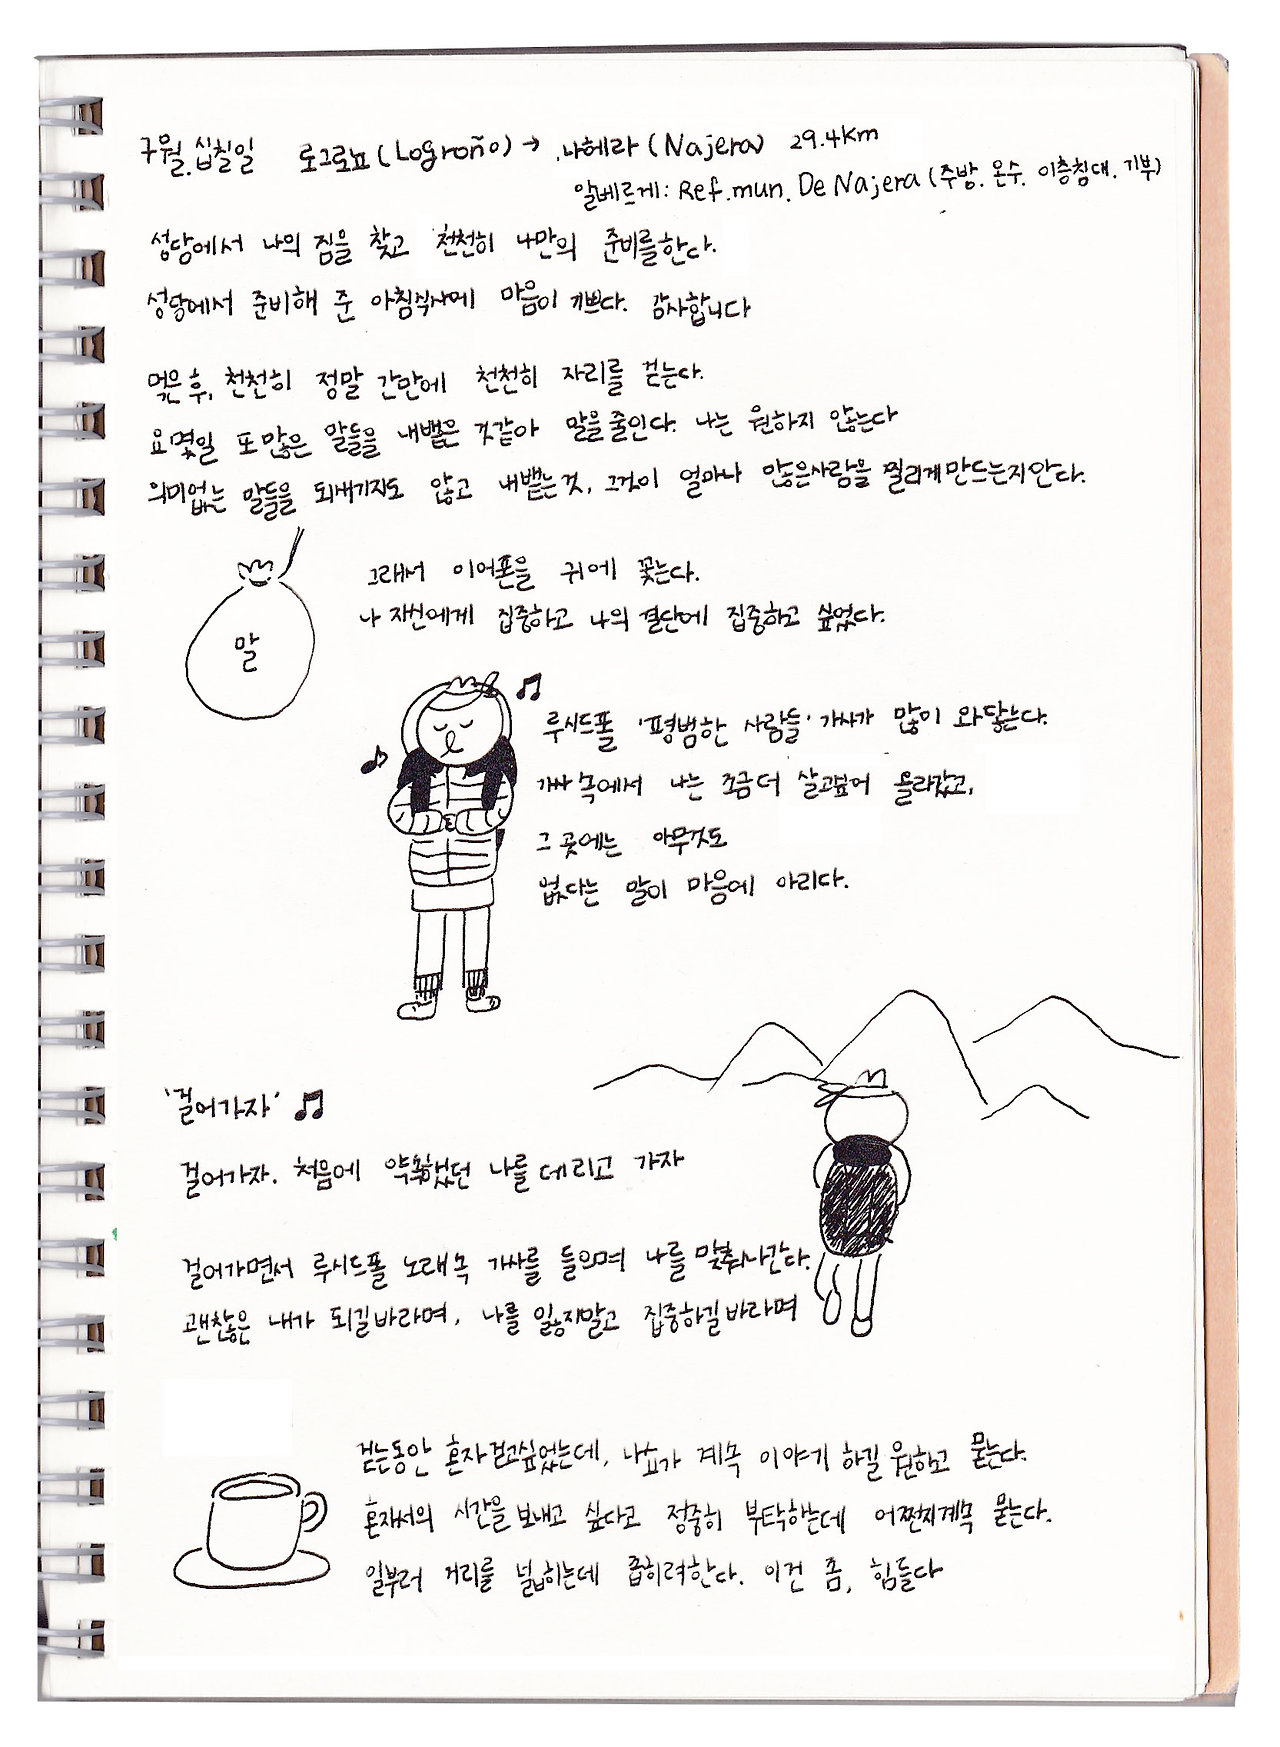 7월.십칠일 로그로뇨(Logroño)→ 나헤라(Najera) 29.4km
알베르게: Ref.mun. De Najera (주방. 온수. 이층침대. 기부)
성당에서 나의 짐을 찾고 천천히 나만의 준비를한다.
성당에서 준비해 준 아침식사에 마음이 기쁘다. 감사합니다
먹은 후, 천천히 정말 간만에 천천히 자리를 걷는다.
요 몇일 또 많은 말들을 내뱉은 것같아 말을 줄인다. 나는 원하지 않는다
의미없는 말들을 되새기지도 않고 내뱉는 것, 그것이 얼마나 많은사람을 찔리게 만드는지안다.
말
그래서 이어폰을 귀에 꽂는다.
나 자신에게 집중하고 나의 결단에 집중하고 싶었다.
루시드폴 '평범한 사람들' 가사가 많이 와닿는다.
가사 속에서 나는 조금더 살고싶어 올라갔고,
그 곳에는 아무것도
없다는 말이 마음에 아리다.
'걸어가자' ♫
걸어가자. 처음에 약속했던 나를 데리고 가자
걸어가면서 루시드폴 노래속 가사를 들으며 나를 맞춰나간다.
괜찮은 내가 되길바라며, 나를 잃지말고 집중하길바라며
걷는동안 혼자걷고싶었는데, 나쇼가 계속 이야기 하길 원하고 묻는다.
혼자서의 시간을 보내고 싶다고 정중히 부탁하는데 어쩐지계속 묻는다.
일부러 거리를 넓히는데 좁히려한다. 이건 좀, 힘들다